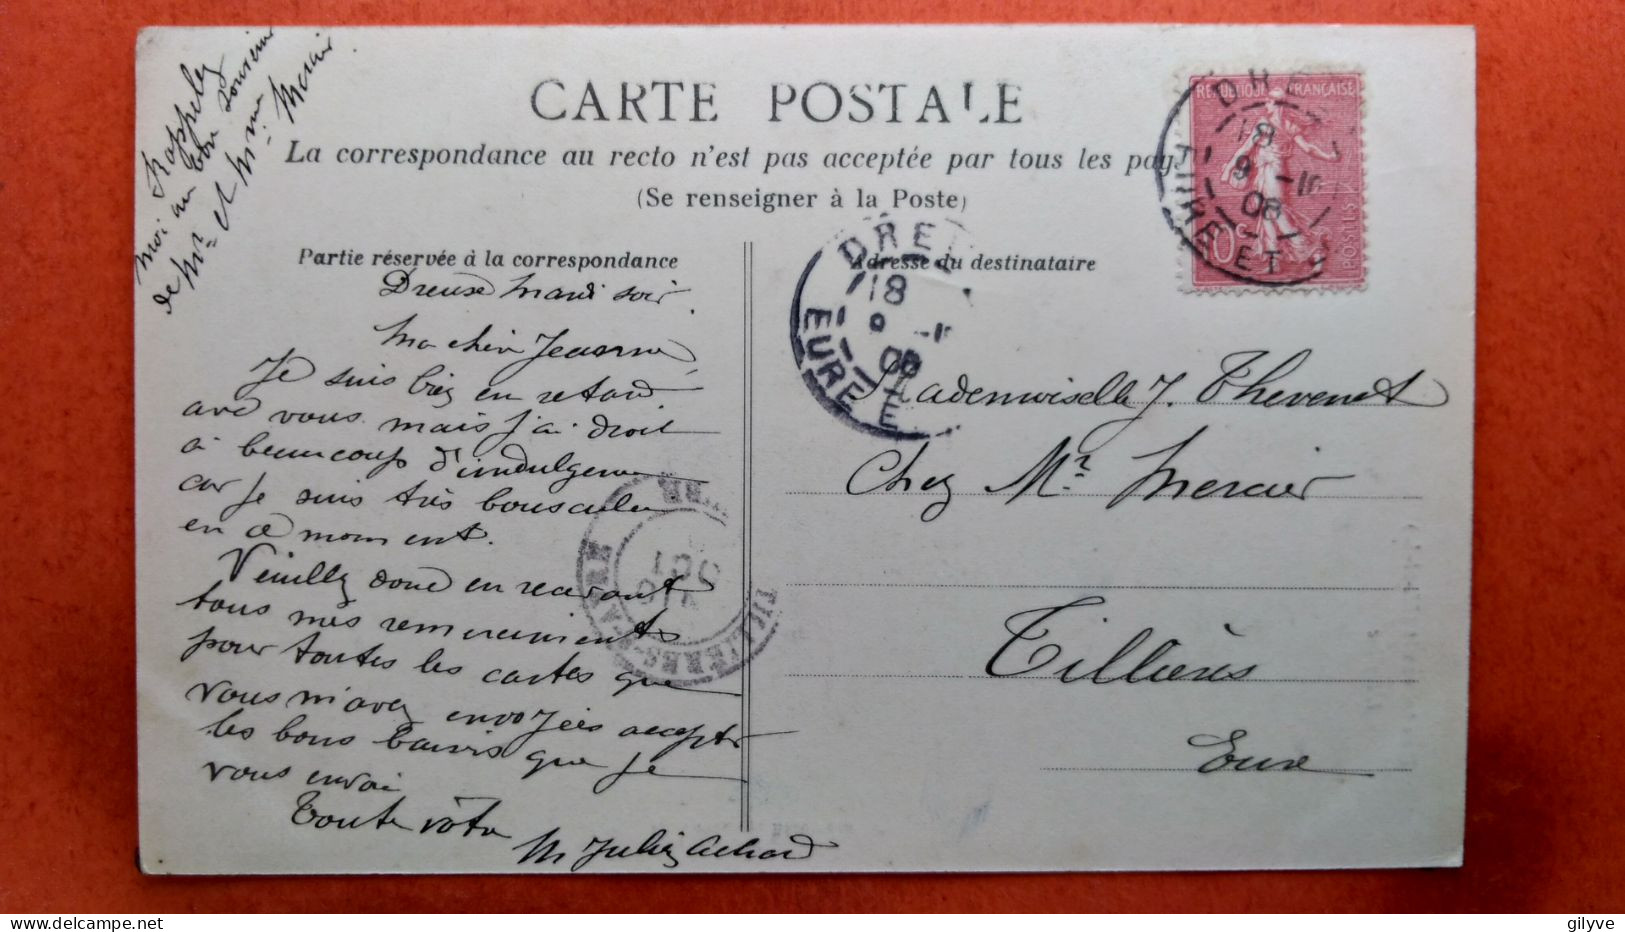 CARTE POSTALE
La correspondance au recto n'est pas acceptée par tous les pays
(Se renseigner à la Poste)
Partie réservée à la correspondance
Adresse du destinataire
Rappelez
moi au bon souvenir
de Mr et Mme Mercier.
Dreux Mardi soir.
Ma chère Jeanne
Je suis bien en retard
avec vous mais j'ai droit
à beaucoup d'indulgence
car je suis très bousculée
en ce moment.
Veuillez donc en recevant
tous mes remerciements
pour toutes les cartes que
vous m'avez envoyées accepter
les bons baisers que je
vous envoie
Toute vôtre
M Achard
Mademoiselle J. Thevenet
Chez Mr Mercier
Tillières
Eure
REPUBLIQUE FRANÇAISE
10c
POSTES
DREUX
18
9 -10
08
EURE ET
DREUX
18
9 -10
08
EURE ET
TILLIERES-S-AVRE
OCT
EURE
gilyve